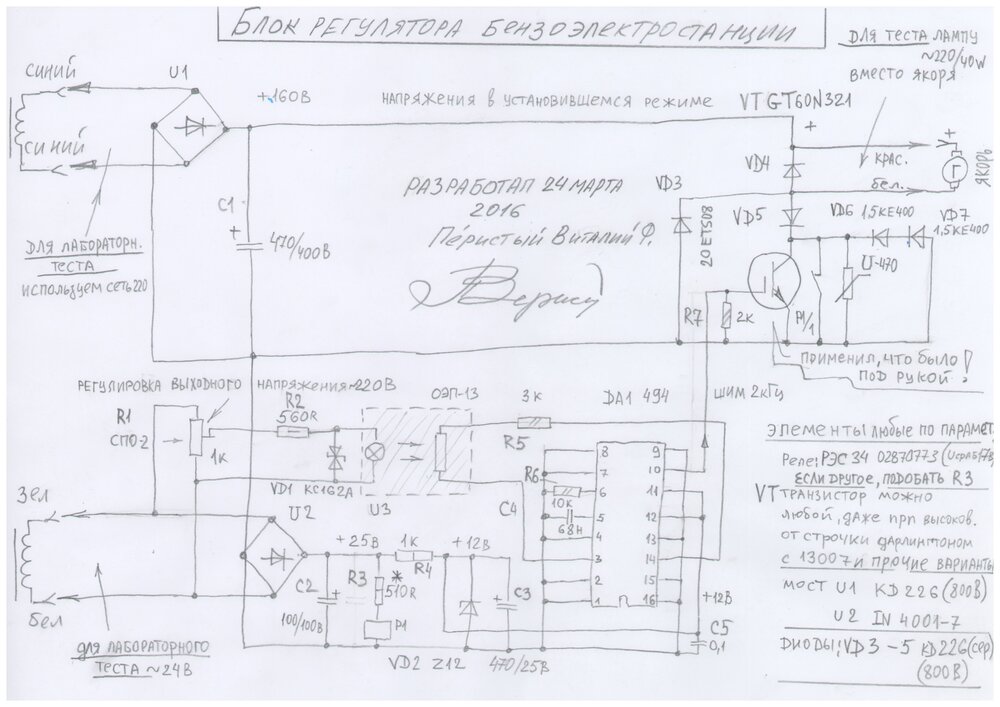 БЛОК РЕГУЛЯТОРА БЕНЗОЭЛЕКТРОСТАНЦИИ
ДЛЯ ТЕСТА ЛАМПУ
~220/40W
ВМЕСТО ЯКОРЯ
СИНИЙ
U1
+160В
НАПРЯЖЕНИЯ В УСТАНОВИВШЕМСЯ РЕЖИМЕ
VT GT60N321
+
СИНИЙ
VD4
КРАС.
+
Г
ЯКОРЬ
БЕЛ.
РАЗРАБОТАЛ 24 МАРТА
2016
Перистый Виталий Ф.
VD3
20ETS08
VD5
VD6 1,5КЕ400
VD7
1,5КЕ400
C1
+
470/400В
ДЛЯ ЛАБОРАТОРН.
ТЕСТА
ИСПОЛЬЗУЕМ СЕТЬ 220
U-470
R7
2К
P1/1
ПРИМЕНИЛ, ЧТО БЫЛО
ПОД РУКОЙ!
РЕГУЛИРОВКА ВЫХОДНОГО НАПРЯЖЕНИЯ ~220В
R1
СПО-2
1К
R2
560R
ОЭП-13
3К
R5
DA1 494
ШИМ 2кГц
VD1 КС162А
U3
C4
R6
10К
68Н
8
7
6
5
4
3
2
1
9
10
11
12
13
14
15
16
ЭЛЕМЕНТЫ ЛЮБЫЕ ПО ПАРАМЕТ
Реле: РЭС 34 02870773
ЕСЛИ ДРУГОЕ, ПОДОБАТЬ R3
VT ТРАНЗИСТОР МОЖНО
ЛЮБОЙ, ДАЖЕ ПРП ВЫСОКОВ.
ОТ СТРОЧКИ ДАРЛИНГТОНОМ
С 13007 И ПРОЧИЕ ВАРИАНТЫ
МОСТ U1 КD226 (800В)
U2 IN 4001-7
ДИОДЫ: VD3-5 КD226(сер)
(800В)
ЗЕЛ
БЕЛ
U2
+25В
1К
R4
+12В
C2
+
100/100В
R3
*
510R
P1
C3
+
VD2 Z12
470/25В
+12В
C5
0,1
ДЛЯ ЛАБОРАТОРНОГО
ТЕСТА ~24В